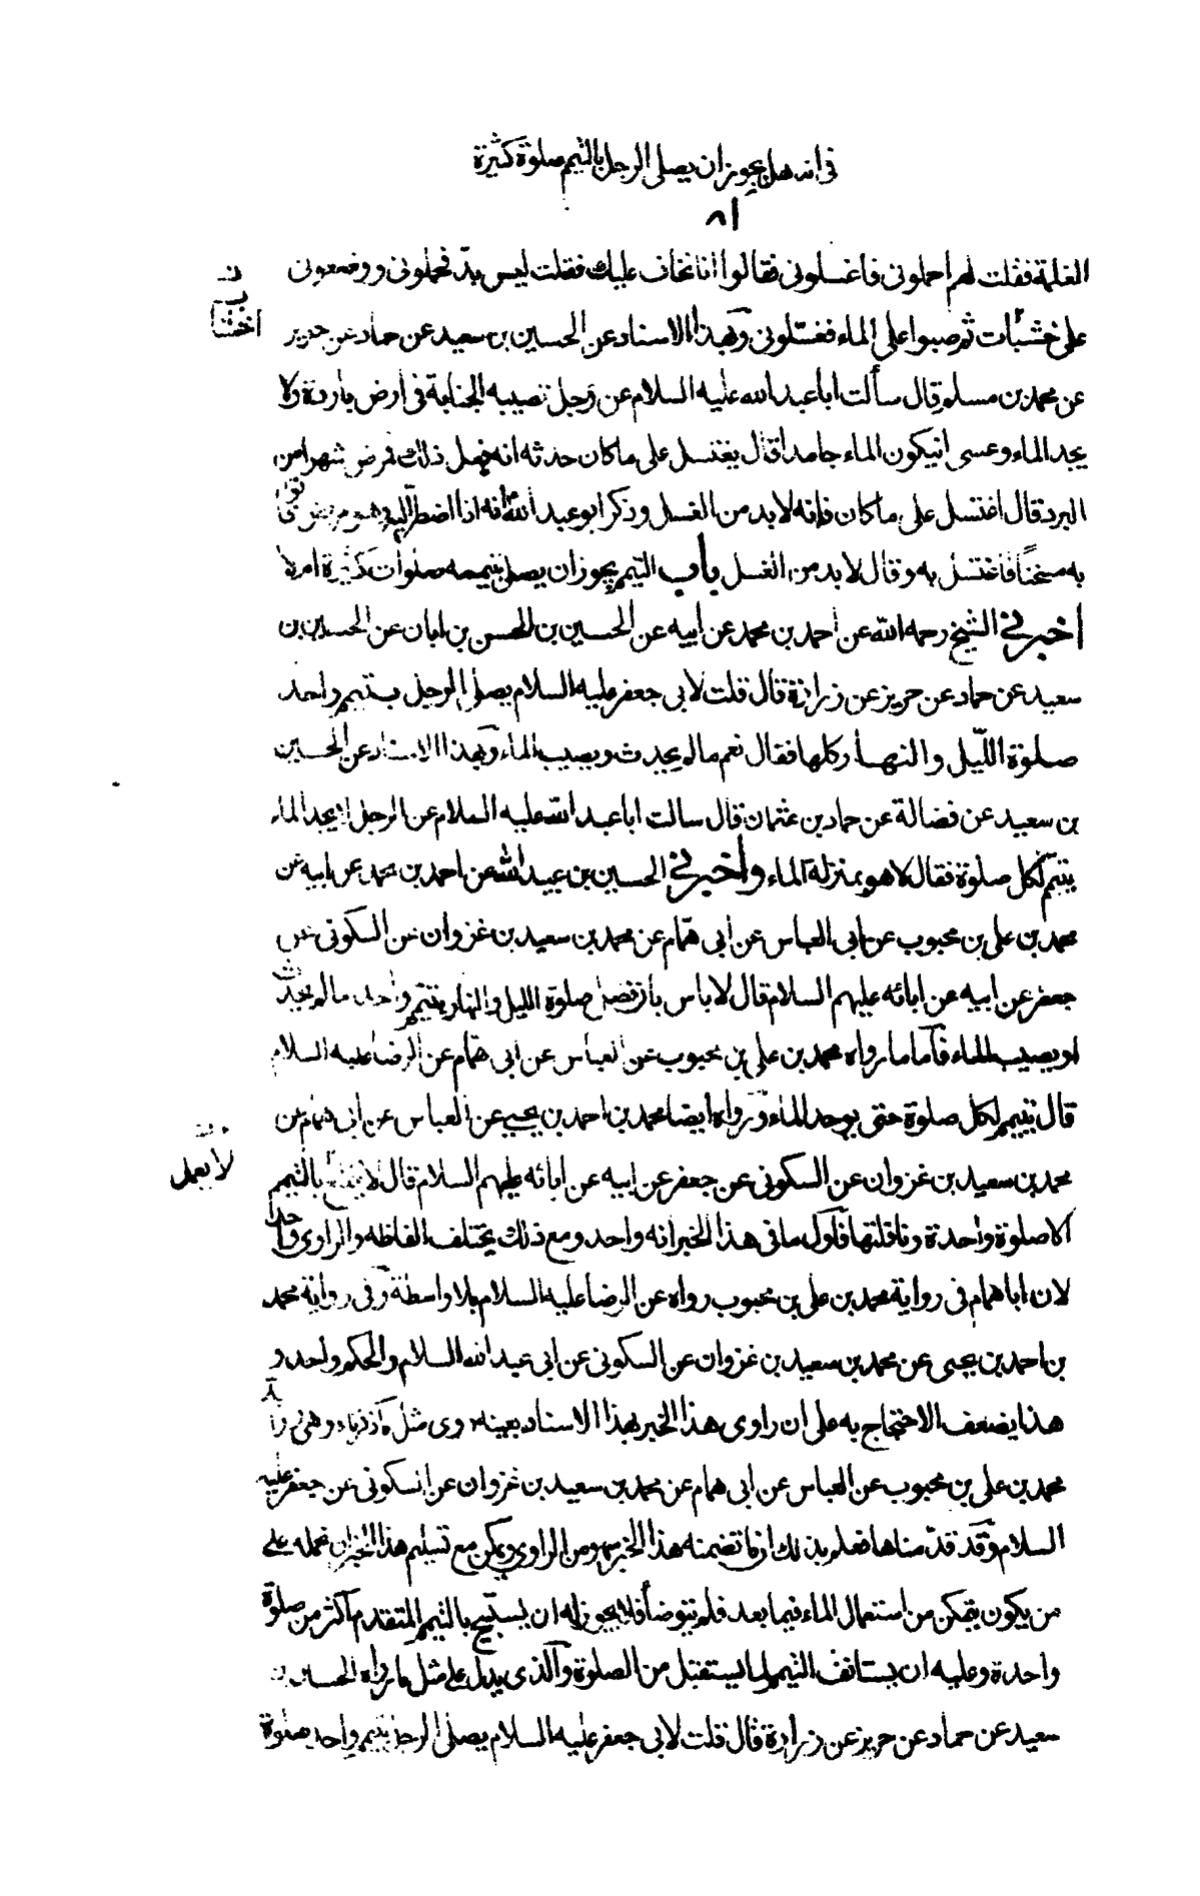 في انه هل يجوز ان يصلي الرجل بالتيمم صلوة كثيرة
٨١
الغلمة فقلت لهم احملوني فاغسلوني فقالوا انا نخاف عليك فقلت ليس بدّ فحملوني ووضعوني
على خشبات ثم صبوا علي الماء فغسّلوني وبهذا الاسناد عن الحسين بن سعيد عن حماد عن حريز
عن محمد بن مسلم قال سألت ابا عبد الله عليه السلام عن رجل تصيبه الجنابة في أرض باردة ولا
يجد الماء وعسى ان يكون الماء جامدا قال يغتسل على ما كان حدثه انه فعل ذلك فمرض شهرا من
البرد قال اغتسل على ما كان فإنه لا بد من الغسل وذكر ابو عبد الله انه اذا اضطرّ اليه وهو مريض فأتوا
به مسخنًا فاغتسل به وقال لا بد من الغسل باب التيمم يجوز ان يصلي بتيممه صلوات كثيرة ام لا
أخبرني الشيخ رحمه الله عن أحمد بن محمد عن أبيه عن الحسين بن الحسن بن ابان عن الحسين بن
سعيد عن حماد عن حريز عن زرارة قال قلت لابي جعفر عليه السلام يصلي الرجل بتيمم واحد
صلوة اللّيل والنهار كلها فقال نعم ما لم يحدث ويصيب الماء وبهذا الاسناد عن الحسين
بن سعيد عن فضالة عن حماد بن عثمان قال سالت ابا عبد الله عليه السلام عن الرجل لا يجد الماء
يتيمّم لكل صلوة فقال لا هو بمنزلة الماء وأخبرني الحسين بن عبيد الله عن احمد بن محمد عن ابيه عن
محمد بن علي بن محبوب عن ابي العباس عن ابي همّام عن محمد بن سعيد بن غزوان عن السكوني عن
جعفر عن ابيه عن ابائه عليهم السلام قال لا باس بان تصلي صلوة الليل والنهار بتيمم واحد ما لم يحدث
او يصيب الماء فأما ما رواه محمد بن علي بن محبوب عن العباس عن ابي همّام عن الرضا عليه السلام
قال تيمم لكل صلوة حتى يوجد الماء ورواه ايضا محمد بن احمد بن يحيى عن العباس عن ابي همام عن
محمد بن سعيد بن غزوان عن السكوني عن جعفر عن ابيه عن ابائه عليهم السلام قال لا بالتيمم
الا صلوة واحدة ونافلتها فأول ما في هذا الخبر انه واحد ومع ذلك يختلف الفاظه والراوي واحد
لان ابا همام في رواية محمد بن علي بن محبوب رواه عن الرضا عليه السلام بلا واسطة وفي رواية محمد
بن احمد بن يحيى عن محمد بن سعيد بن غزوان عن السكوني عن ابي عبد الله السلام والحكم واحد و
هذا يضعف الاحتجاج به على ان راوي هذا الخبر بهذا الاسناد بعينه روى مثل ما ذكرناه وهي
محمد بن علي بن محبوب عن العباس عن ابي همام عن محمد بن سعيد بن غزوان عن السكوني عن جعفر عليه
السلام وقد قدّمناها فعلم بذلك ان ما تضمنه هذا الخبر سهو من الراوي ويمكن مع تسليم هذا الخبر ان نحمله على
من يكون يتمكن من استعمال الماء فيما بعد فلم يتوضأ فلا يجوز له ان يستبيح بالتيمم المتقدم أكثر من صلوة
واحدة وعليه ان يستانف التيمم لما يستقبل من الصلوة والّذي يدل على مثل ما رواه الحسين بن
سعيد عن حماد عن حريز عن زرارة قال قلت لابي جعفر عليه السلام يصلي الرجل بتيمم واحد صلوة
لا يعمل